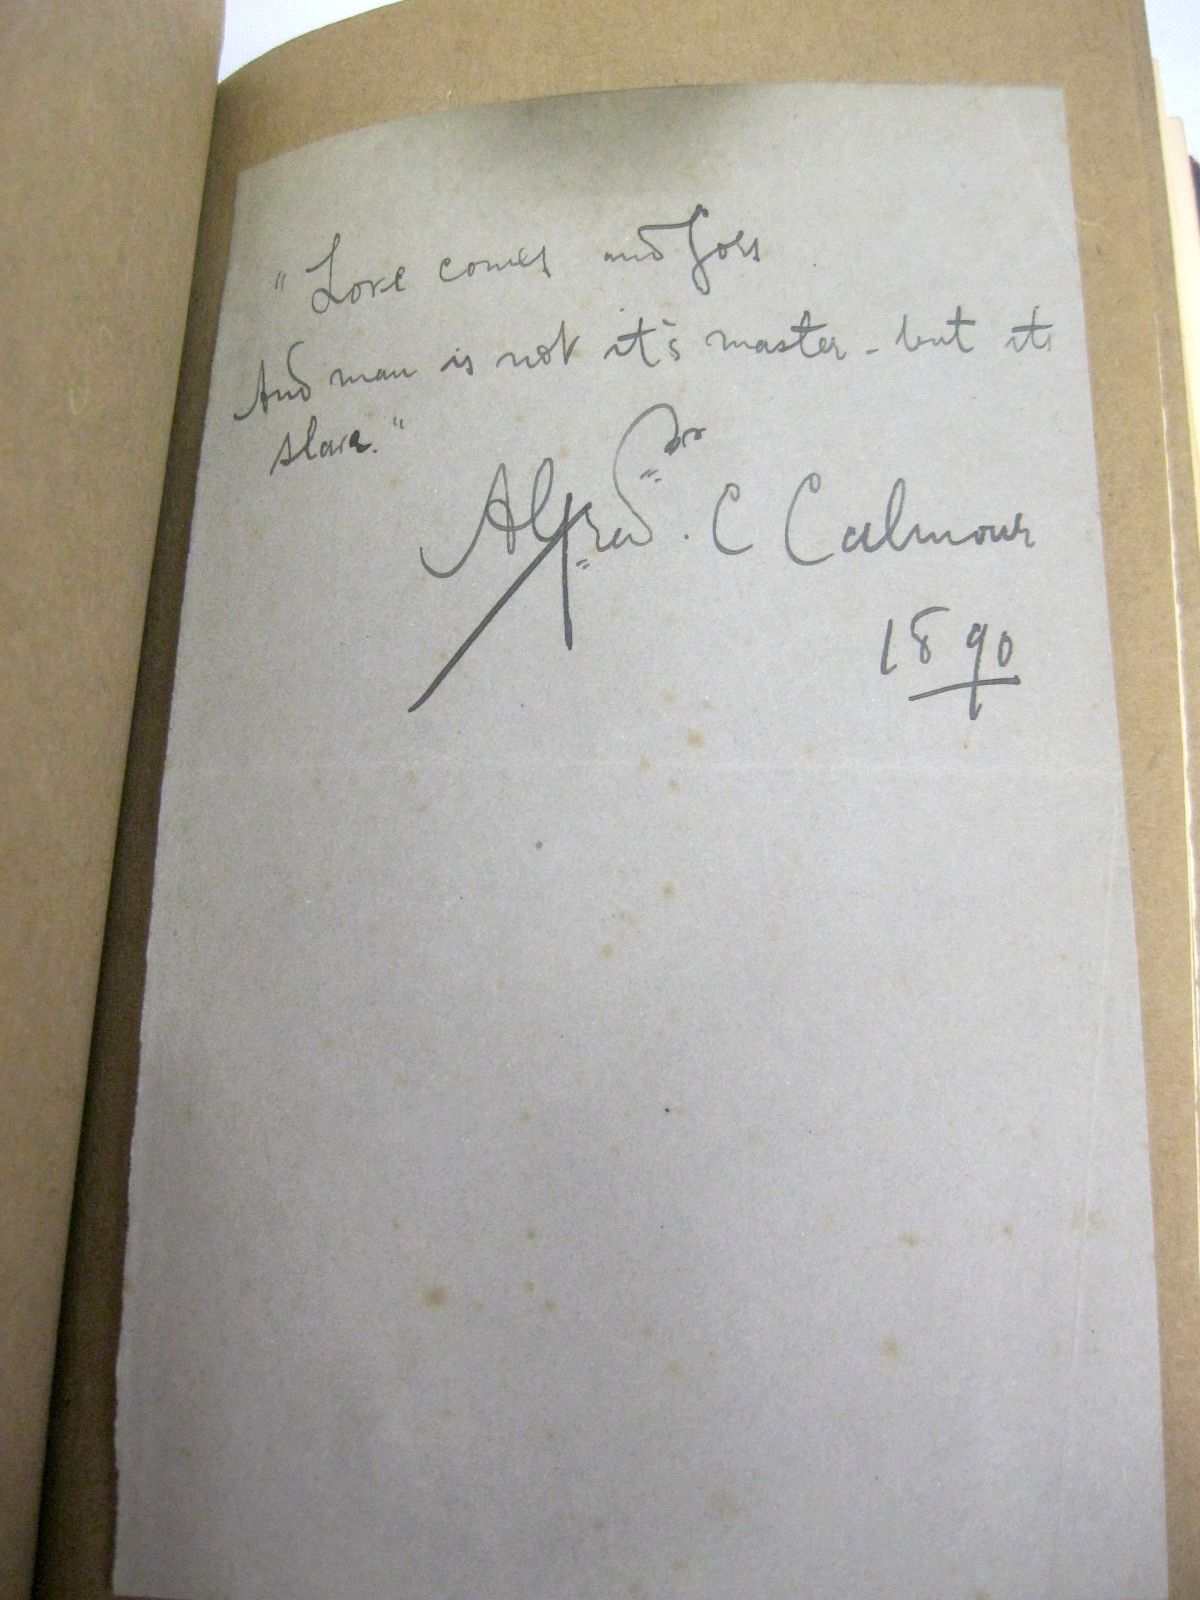 "Love comes and goes
And man is not it's master - but its
slave."
Alfred. C Calmour
1890